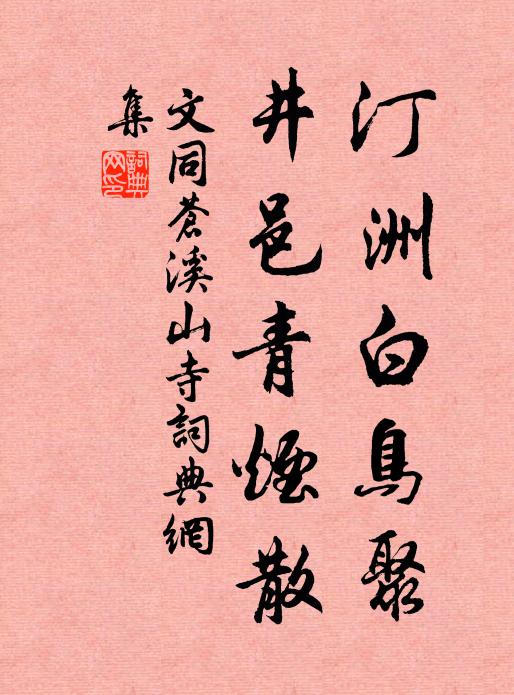 汀洲白鳥聚
井邑青煙散
文同蒼溪山寺詞典網
集
詞典網印